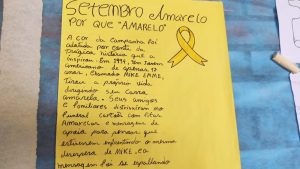 SETEMBRO AMARELO
POR QUE "AMARELO"
A cor da campanha foi
adotada por conta da
trágica história que a
inspirou. Em 1994, um jovem
americano de apenas 17
anos chamado MIKE EMME,
tirou a própria vida
dirigindo seu carro
amarelo. Seus amigos
e familiares distribuíram no
funeral cartões com fitas
Amarelas e mensagens de
apoio para pessoas que
estivessem enfrentando o mesmo
desespero de MIKE, e a
mensagem foi se espalhando